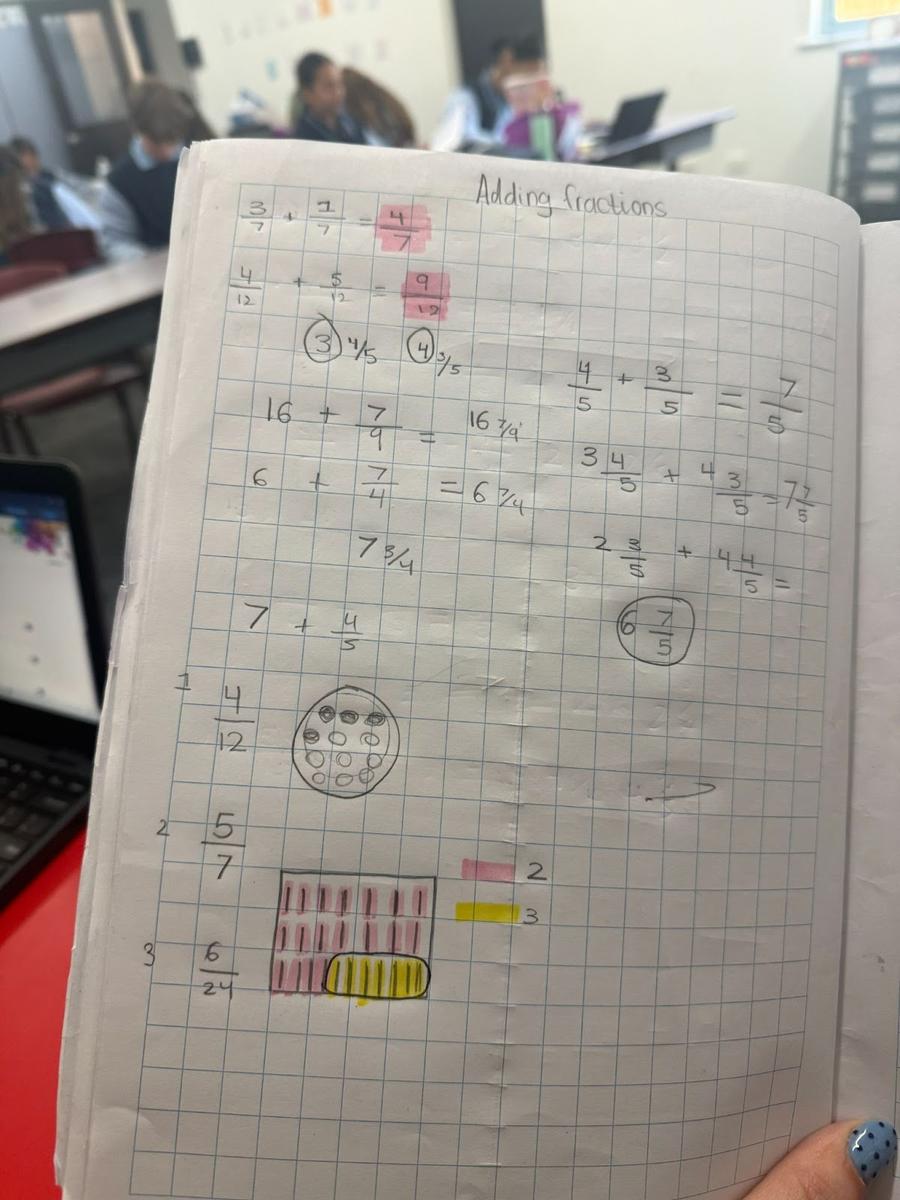 Adding fractions
3/7 + 1/7 = 4/7
4/12 + 5/12 = 9/12
3 4/5 4 3/5
16 + 7/9 = 16 7/9
6 + 7/4 = 6 7/4
7 3/4
7 + 4/5
4/5 + 3/5 = 7/5
3 4/5 + 4 3/5 = 7 7/5
2 3/5 + 4 4/5 =
6 7/5
1 4/12
2 5/7
3 6/24
2
3